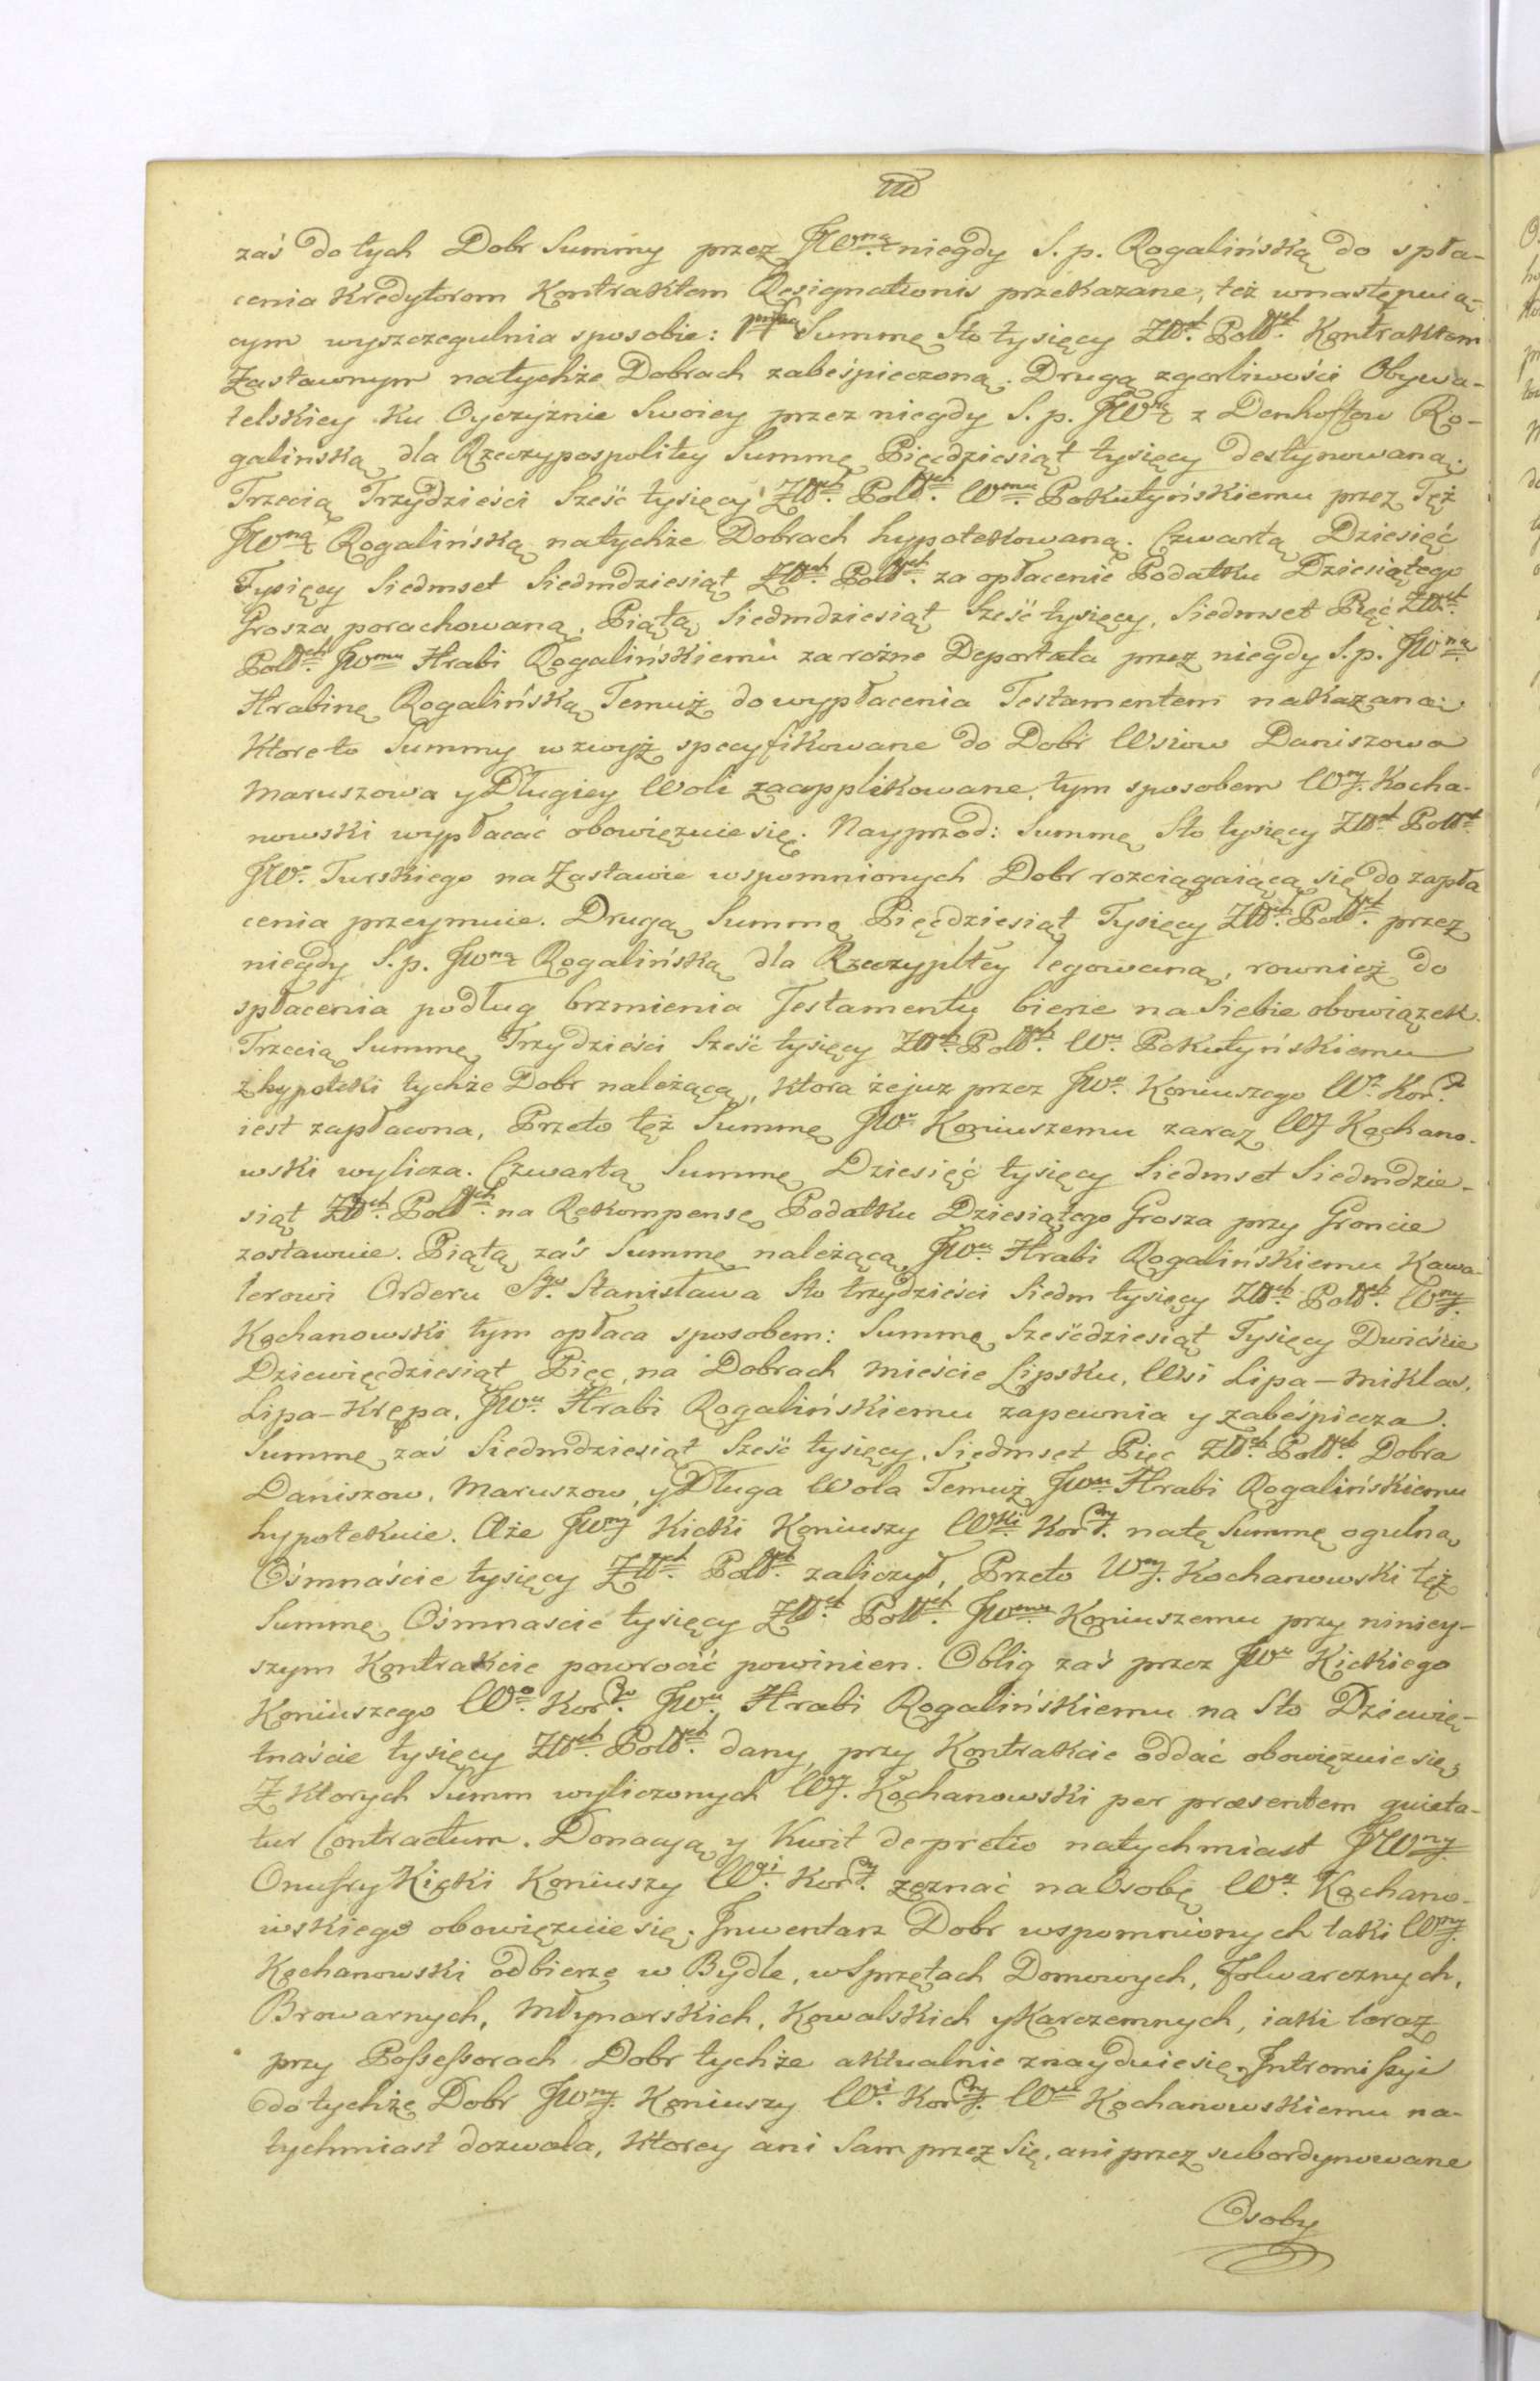 zaś do tych Dobr Summy przez JWną niegdy S. p. Rogalińską do spła-
cenia Kredytorom Kontraktem Resignationis przekazane, też wnastępuią-
cym wyszczegulnia sposobie: Summę Sto tysięcy Złłch. Pollch. Kontraktem
Zastawnym natychże Dobrach zabeśpieczoną. Drugą zgorliwości Obywa-
telskiey ku Oyczyznie Swoiey przez niegdy S. p. JWą z Denhoffow Ro-
galińską dla Rzeczypospolitey Summę Pięcdziesiąt tysięcy destynowaną.
Trzecią Trzydzieści Sześć tysięcy Złłch. Pollch. Wmu Pokutyńskiemu przez Tęż
JWną Rogalińską natychże Dobrach hypotekowaną. Czwartą Dziesięć
Tysięcy Siedmset Siedmdziesiąt Złłch. Pollch. za opłacenie Podatku Dziesiątego
Grosza porachowaną, Piątą Siedmdziesiąt Sześć tysięcy, Siedmset Pięć Złłch.
Pollch. JWmu Hrabi Rogalińskiemu za rożne Deportata przez niegdy S. p. JWną
Hrabinę Rogalińską Temuż do wypłacenia Testamentem nakazaną;
Ktore to Summy wzwyż specyfikowane do Dobr Wsiow Daniszowa
Maruszowa y Długiey Woli zaapplikowane, tym sposobem Wy. Kocha-
nowski wypłacać obowięzuie się. Nayprzod: Summę Sto tysięcy Złłch. Pollch.
JWo. Turskiego na Zastawie wspomnionych Dobr rozciągaiącą się do zapła
cenia przeymuie. Drugą Summę Pięcdziesiąt Tysięcy Złłch. Pollch. przez
niegdy S. p. JWną Rogalińską dla Rzeczypltey legowaną, rownież do
spłacenia podług brzmienia Testamentu bierze na Siebie obowiązek.
Trzecią Summę Trzydzieści Sześć tysięcy Złłch. Pollch. Wu. Pokutyńskiemu
z hypoteki tychże Dobr należącą, ktora że juz przez JWo. Koniuszego Wo. Kor.
iest zapłacona, Przeto też Summę JWu Koniuszemu zaraz Wy Kochano-
wski wylicza. Czwartą Summę Dziesięć tysięcy Siedmset Siedmdzie-
siąt Złłch. Pollch. na Rekompensę Podatku Dziesiątego Grosza przy Groncie
zostawuie. Piątą zaś Summę należącą JWu. Hrabi Rogalińskiemu Kawa-
lerowi Orderu Sgo. Stanisława Sto trzydzieści Siedm tysięcy Złłch. Pollch. Wny.
Kochanowski tym opłaca sposobem: Summę Sześćdziesiąt Tysięcy Dwieście
Dziewięcdziesiąt Pięc, na Dobrach Mieście Lipsku, Wsi Lipa-Miklas,
Lipa-Krępa, JWu. Hrabi Rogalińskiemu zapewnia y zabeśpiecza.
Summę zaś Siedmdziesiąt Sześć tysięcy, Siedmset Pięc Złłch. Pollch. Dobra
Daniszow, Maruszow, y Długa Wola Temuż JWu Hrabi Rogalińskiemu
hypotekuie. Aże JWny Kicki Koniuszy Wki. Kor. natę Summę ogulną
Ośmnaście tysięcy Złłch. Pollch. zaliczył, Przeto Wny. Kochanowski tęż
Summę Ośmnascie tysięcy Złłch. Pollch. JWmu Koniuszemu przy niniey-
szym Kontrakcie powrocić powinien. Oblig zaś przez JWo Kickiego
Koniuszego Wo. Kor. JWu. Hrabi Rogalińskiemu na Sto Dziewię-
tnaście tysięcy Złłch. Pollch. dany, przy Kontrakcie oddać obowięzuie się,
Z ktorych Summ wyliczonych Wy. Kochanowski per præsentem quieta-
tur Contractum. Donacyą y Kwit de pretio natychmiast JWny.
Onufry Kicki Koniuszy Wgi. Kor. zeznać na Osobę Wo. Kochano-
wskiego obowięzuie się. Inwentarz Dobr wspomnionych taki Wny.
Kochanowski odbierze w Bydle, w Sprzętach Domowych, Folwarcznych,
Browarnych, Młynarskich, Kowalskich y Karczemnych, iaki teraz
przy Possessorach Dobr tychże aktualnie znayduie się. Intromissyi
do tychże Dobr JWny. Koniuszy Wi. Kor. Wu Kochanowskiemu na-
tychmiast dozwala, ktorey ani Sam przez Się, ani przez subordynowane
Osoby